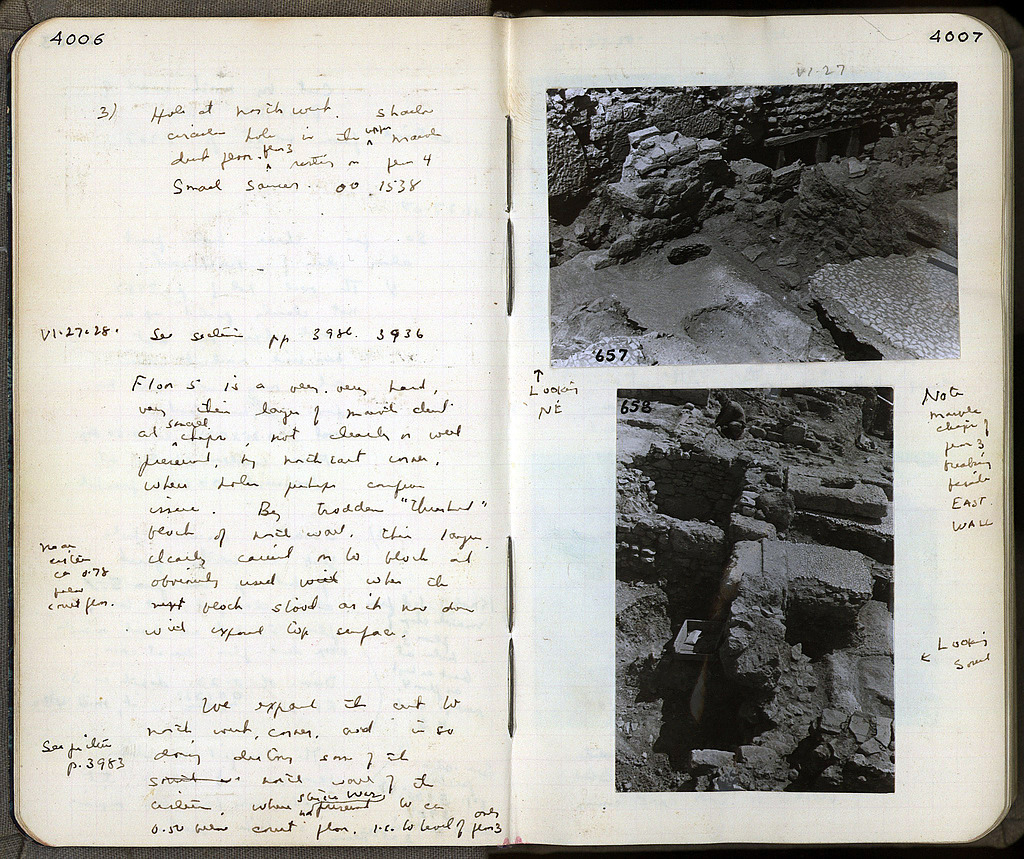 4006
3) Hole at north west. Shallow
circular hole in the upper marble
dust floor. floor 3 rests on floor 4
Small Saucer. OO 1538
VI.27.28. See section pp. 3986. 3936
Floor 5 is a very, very hard,
very thin layer of marble dust
at small chips not clearly or well
preserved, by north east corner,
where holes perhaps confuse
issue. By trodden "threshold"
block of north wall, this layer
clearly carried on to block at
obviously used with when the
block stood as it now does
with exposed top surface.
near
cistern
ca 0.78
below
court floor.
We expand the cut to
north west, corner, and in so
doing destroy some of the
south north wall of the
cistern, where not present to ca
0.50 below court floor. i.e. to level of floor 3
See picture
p. 3983
4007
VI-27
657
↑
Looking
NE
658
Note
marble
chips of
floor 3
breaking
beside
EAST
WALL
← Looking
South